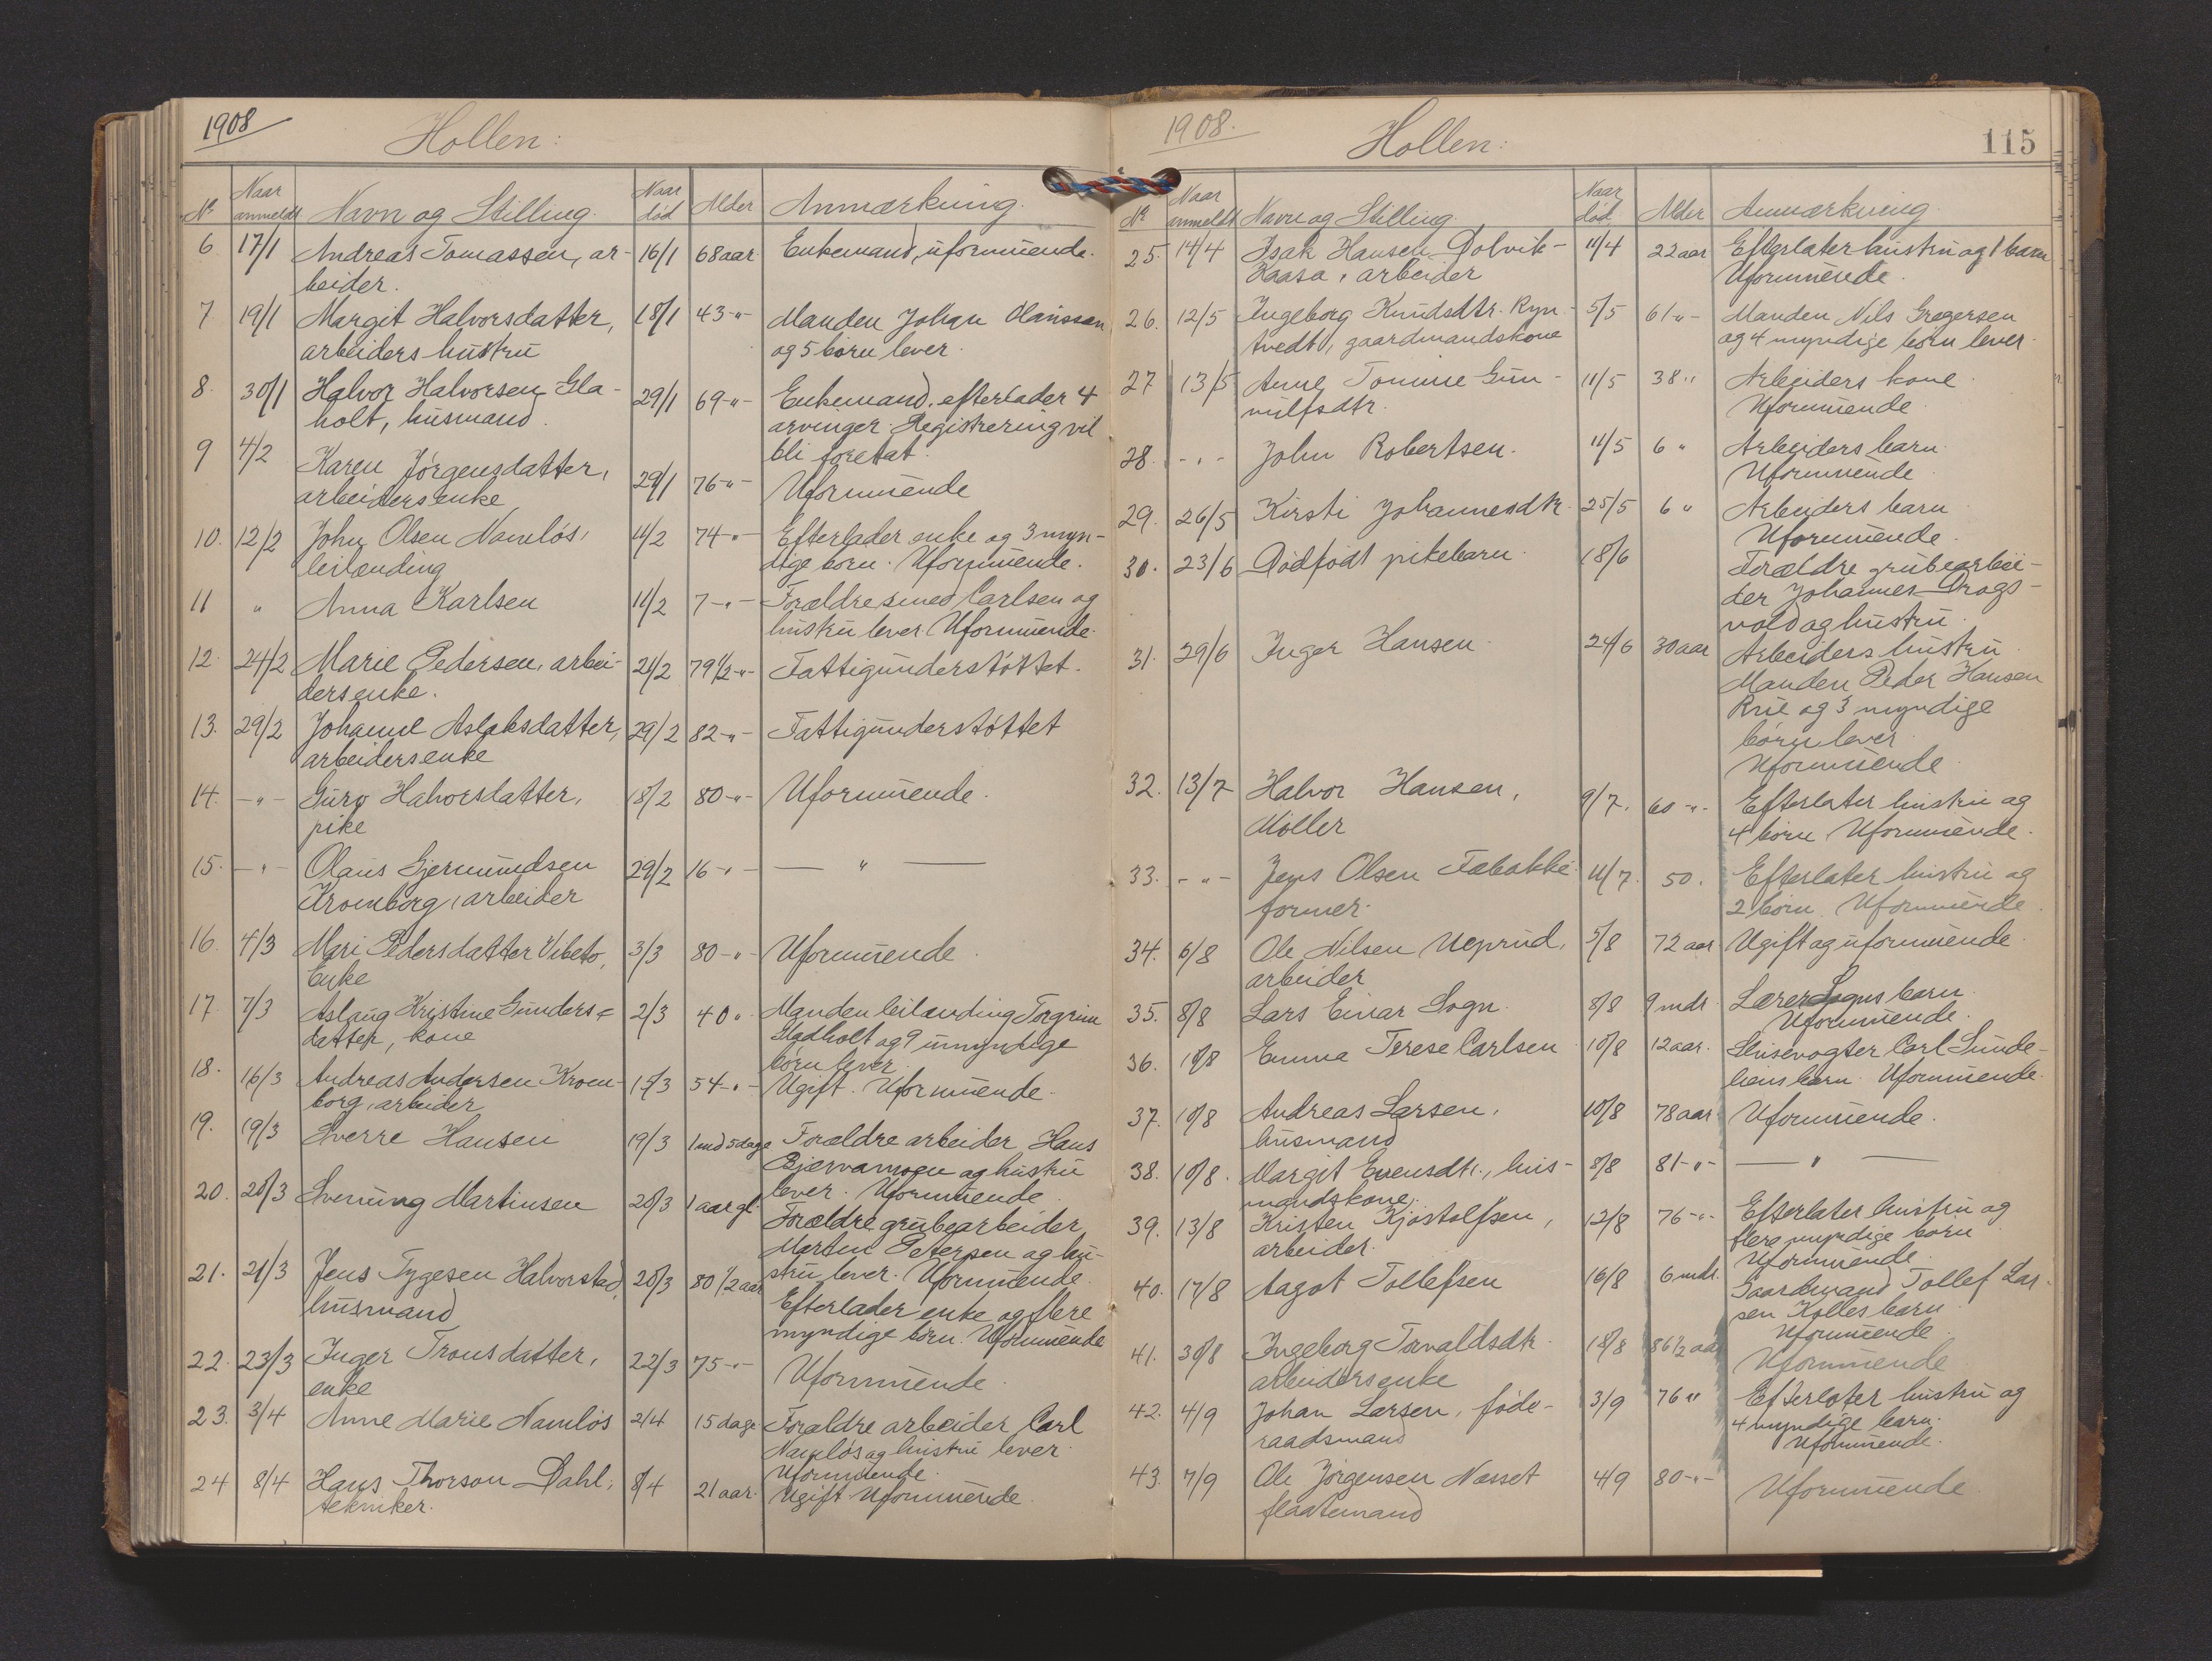 1908
Hollen:
No Naar anmeldt Navn og Stilling. Naar død Alder Anmærkning.
6 17/1 Andreas Tomassen, ar- 16/1 68 aar. Enkemand, uformuende.
beider.
7 19/1 Margit Halvorsdatter, 18/1 43-"- Manden Johan Hanssen
arbeiders hustru og 5 børn lever.
8. 30/1 Halvor Halvorsen Gla- 29/1 69-"- Enkemand. efterlader 4
holt, husmand. arvinger. Registrering vil
bli foretat.
9 4/2 Karen Jörgensdatter, 29/1 76-"- Uformuende
arbeidersenke
10. 12/2 John Olsen Namlös, 11/2 74-"- Efterlader enke og 3 myn-
leilænding dige børn. Uformuende.
11 " Anna Karlsen 11/2 7-"- Forældre smed Carlsen og
hustru lever. Uformuende.
12. 24/2 Marie Pedersen, arbei- 21/2 79 1/2-"- Fattigunderstøttet.
dersenke.
13. 29/2 Johanne Aslaksdatter, 29/2 82-"- Fattigunderstöttet
arbeidersenke
14. -"- Guro Halvorsdatter, 18/2 80-"- Uformuende.
pike
15. -"- Olaus Gjermundsen 29/2 16-"- — " —
Kromborg, arbeider
16. 4/3 Mari Pedersdatter Vibeto, 3/3 80-"- Uformuende.
Enke
17. 7/3 Aslaug Kristine Gunders= 2/3 40 " Manden leilænding Torgrim
datter, kone Gladholt og 9 umyndige
børn lever.
18. 16/3 Andreas Andersen Krom- 15/3 54-"- Ugift. Uformuende.
borg, arbeider
19. 19/3 Sverre Hansen 19/3 1 md 5 dage Forældre arbeider Hans
Bjervamoen og hustru
lever. Uformuende.
20. 20/3 Svenung Martinsen 20/3 1 aar gl. Forældre grubearbeider
Martin Petersen og hu-
stru lever. Uformuende.
21. 21/3 Jens Tygesen Halvorstad, 20/3 80 1/2 aar Efterlader enke og flere
husmand myndige børn. Uformuende
22. 23/3 Inger Tronsdatter, 22/3 75-"- Uformuende.
enke
23. 3/4 Anne Marie Namløs 2/4 15 dage Forældre arbeider Carl
Namløs og hustru lever.
Uformuende.
24 8/4 Hans Thorson Dahl, 8/4 21 aar. Ugift. Uformuende.
tekniker.
1908.
Hollen:
115
No Naar anmeldt Navn og Stilling. Naar død. Alder Anmærkning.
25. 14/4 Isak Hansen Dolvik- 11/4 22 aar Efterlater hustru og 1 barn
Kaasa, arbeider Uformuende.
26. 12/5 Ingeborg Knudsdtr. Ryn- 5/5 61-"- Manden Nils Gregersen
tvedt, gaardmandskone og 4 myndige børn lever.
27 13/5 Anne Tomine Gun- 11/5 38 " Arbeiders kone.
nulfsdtr. Uformuende.
28. -"- John Robertsen. 11/5 6 " Arbeiders barn.
Uformuende
29. 26/5 Kirsti Johannesdtr. 25/5 6 " Arbeiders barn
Uformuende.
30. 23/6 Dødfødt pikebarn. 18/6 Forældre grubearbei-
der Johannes Drags-
vold og hustru.
31. 29/6 Inger Hansen. 24/6 30 aar Arbeiders hustru.
Manden Peder Hansen
Rrie og 3 myndige
børn lever
Uformuende
32. 13/7 Halvor Hansen, 9/7. 60-"- Efterlater hustru og
Møller 4 børn Uformuende.
33. -"- Jens Olsen Fæbakke 11/7. 50. Efterlater hustru og
former. 2 børn. Uformuende.
34. 6/8 Ole Nilsen 5/8 72 aar Ugift og uformuende.
arbeider
35. 8/8 Lars Einar Sogn. 8/8 9 mdr. Lærer Sogns barn
Uformuende.
36. 10/8 Emma Terese Carlsen 10/8 12 aar. Slusevogter Carl Lunde-
liens barn. Uformuende.
37. 10/8 Andreas Larsen, 10/8 78 aar Uformuende.
husmand
38. 10/8. Margit Evensdtr., hus- 8/8 81-"- — " —
mandskone.
39. 13/8 Kristen Kjøstolfsen, 12/8 76-"- Efterlater hustru og
arbeider. flere myndige børn
Uformuende.
40. 17/8 Aagot Tollefsen 16/8 6 mdr. Gaardmand Tollef Lar-
sen Kolles barn
Uformuende.
41. 30/8 Ingeborg Torvaldsdtr. 18/8 86 1/2 aar Uformuende
arbeidersenke
42. 4/9 Johan Larsen, føde- 3/9 76 " Efterlater hustru og
raadsmand 4 myndige barn.
Uformuende.
43. 7/9 Ole Jörgensen Næsset 4/9 80-"- Uformuende
flaatemand